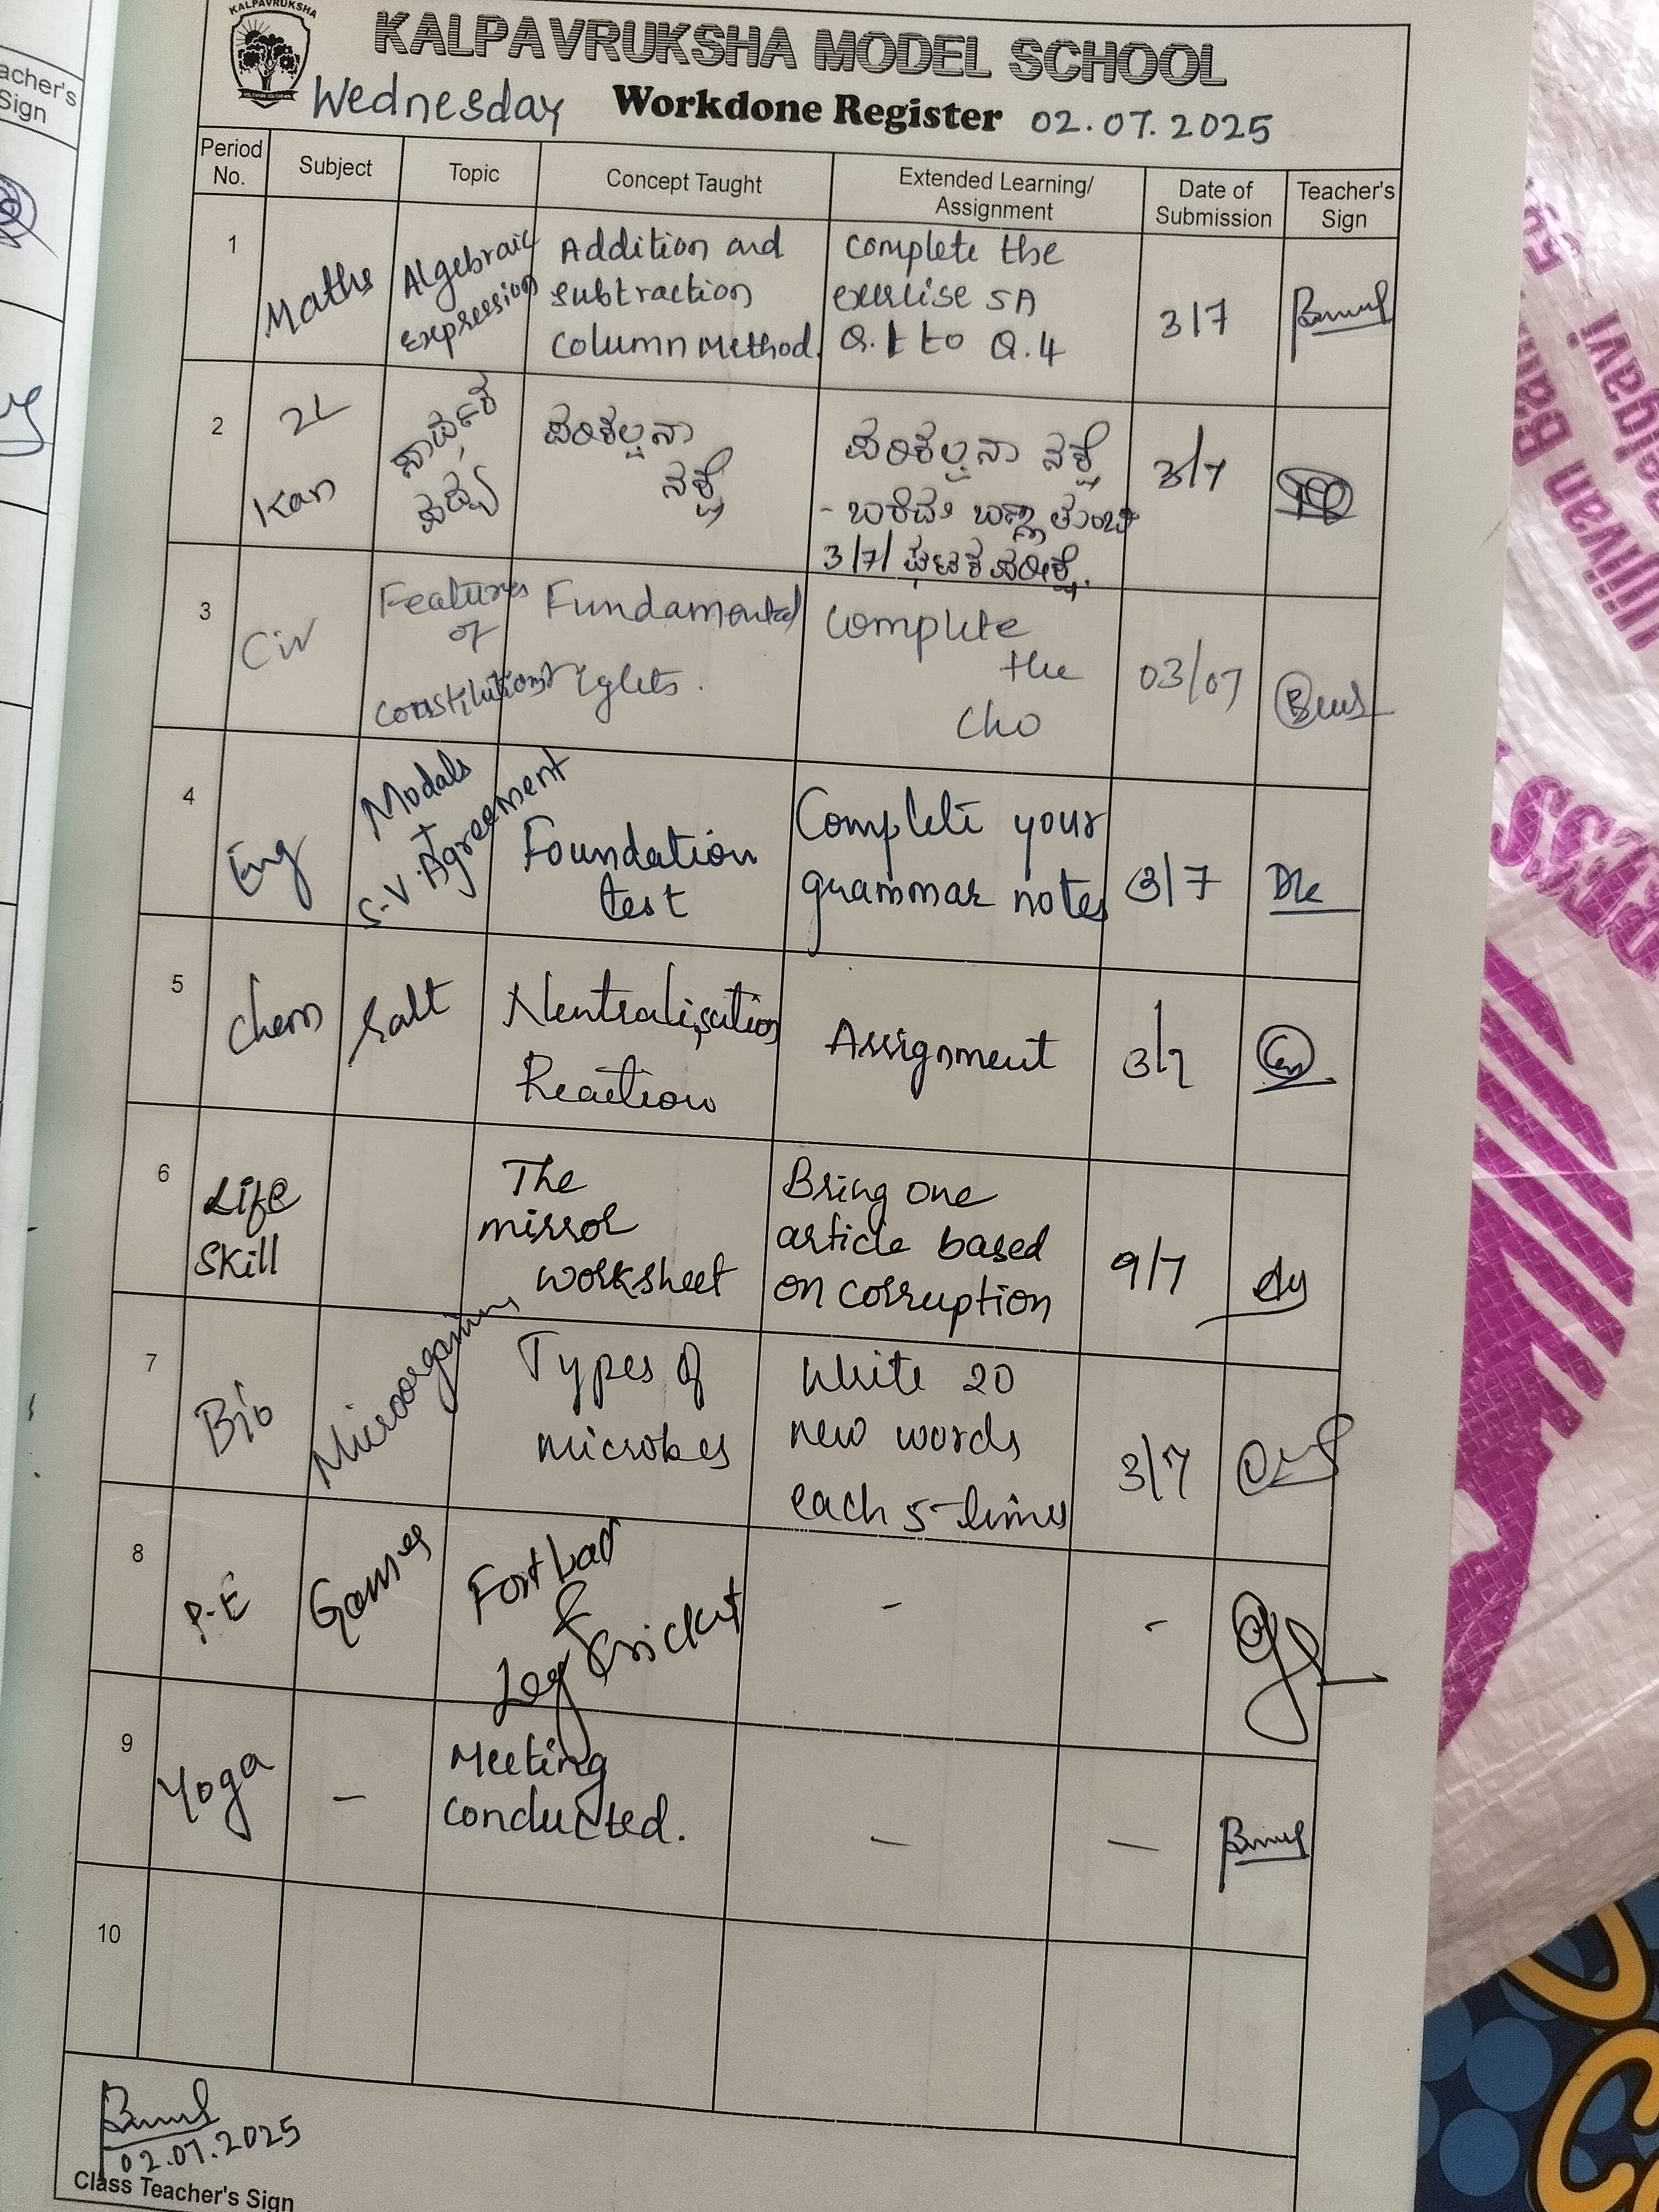 acher's
Sign
KALPAVRUKSHA
KALPAVRUKSHA MODEL SCHOOL
Wednesday Workdone Register 02.07.2025
Period No. Subject Topic Concept Taught Extended Learning/ Assignment Date of Submission Teacher's Sign
1 Maths Algebraic Expression Addition and subtraction Column Method. Complete the exercise 5A Q.1 to Q.4 3/7
2 2L Kan ಪರಿಕಲ್ಪನಾ ನಕ್ಷೆ ಪರಿಕಲ್ಪನಾ ನಕ್ಷೆ - ಬಣ್ಣ 3/7/ ಘಟಕ ಪರೀಕ್ಷೆ. 3/7
3 Civ Features of Constitution Fundamental rights. Complete the Cho 03/07
4 Eng Modals + S-V-Agreement Foundation test Complete your grammar notes 3/7
5 Chem Salt Neutralisation Reaction Assignment 3/7
6 Life Skill The mirror worksheet Bring one article based on corruption 9/7
7 Bio Microorganisms Types of microbes Write 20 new words each 5-times 3/7
8 P.E Games & Leg Cricket - -
9 Yoga - Meeting conducted. - -
10
02.07.2025
Class Teacher's Sign